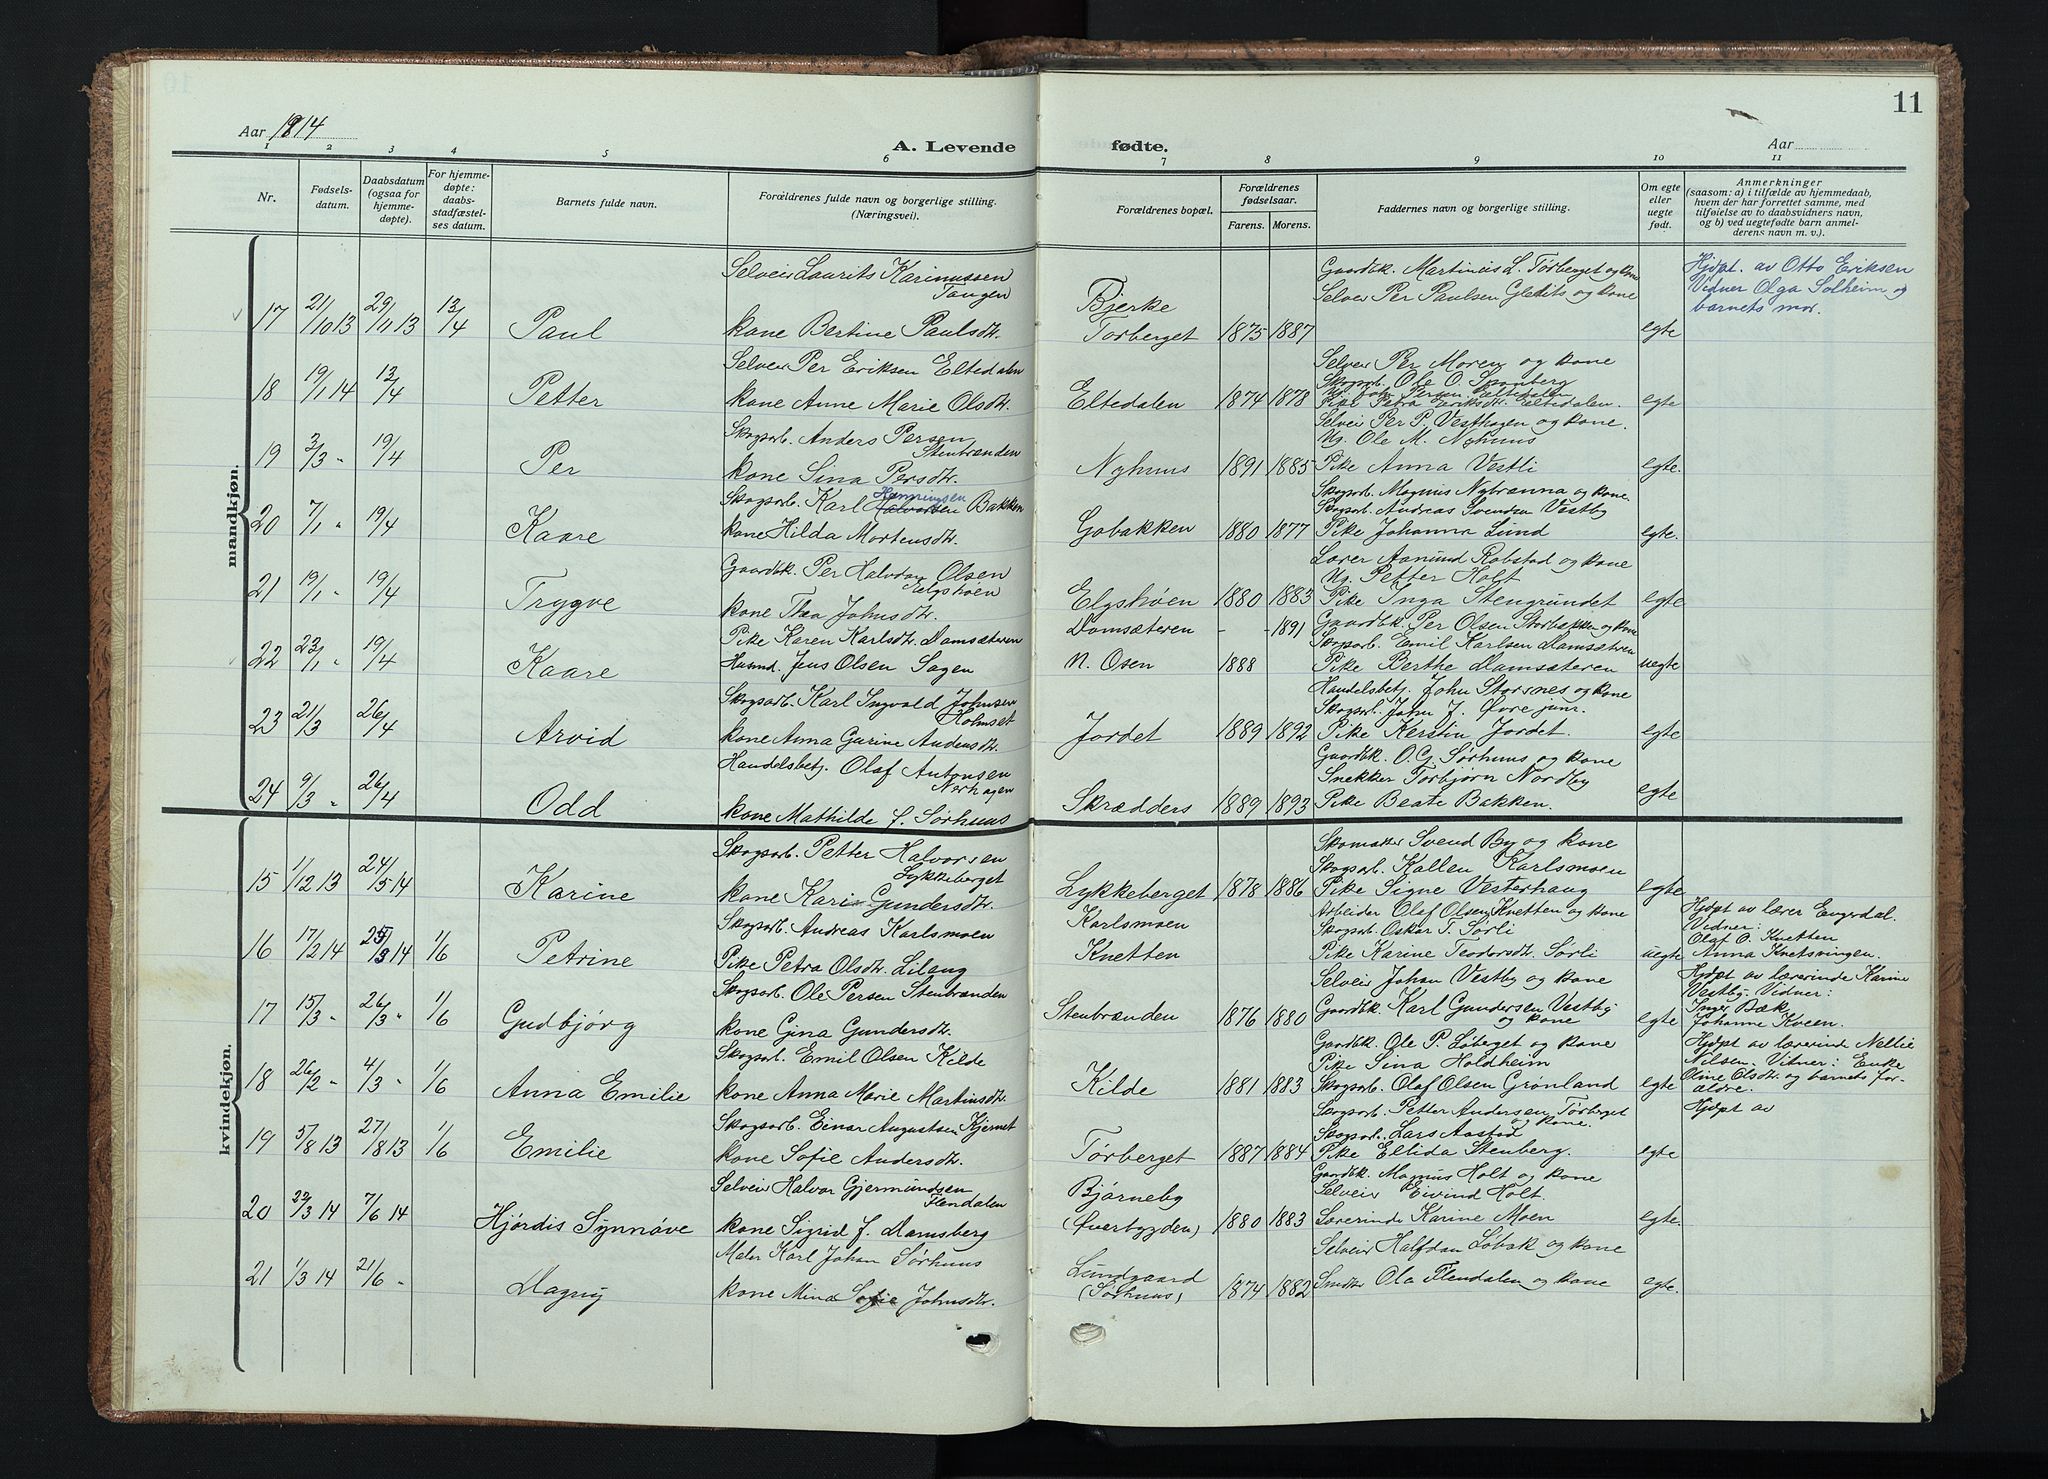 11
Aar 1914
A. Levende fødte.
Aar
1 2 3 4 5 6 7 8 9 10 11
Nr.
Fødsels-
datum.
Daabsdatum
(ogsaa for
hjemme-
døpte).
For hjemme-
døpte:
daabs-
stadfæstel-
ses datum.
Barnets fulde navn.
Forældrenes fulde navn og borgerlige stilling.
(Næringsvei).
Forældrenes bopæl.
Forældrenes
fødselsaar.
Farens. Morens.
Faddernes navn og borgerlige stilling.
Om egte
eller
uegte
født.
Anmerkninger
(saasom: a) i tilfælde av hjemmedaab,
hvem der har forrettet samme, med
tilføielse av to daabsvidners navn,
og b) ved uegtefødte barn anmel-
derens navn m. v.).
mandkjøn.
17 21/10 13 29/11 13 13/4 Paul
Selveier Laurits Karinussen
Tangen
kone Bertine Paulsdtr.
Bjerke
Tørberget 1875 1887
Gaardbk. Martinus L. Tørberget og kone
Selveier Per Paulsen Gledits og kone
egte
Hjdpt. av Otto Eriksen
Vidner Olga Solheim og
barnets mor.
18 19/1 14 13/4 Petter
Selveier Per Eriksen Eltedalen
kone Anne Marie Olsdtr.
Eltedalen 1874 1878
Selveier Per Moren og kone
Skogsarb. Ole O. Spanberg
Ug. Joh. Persen Eltedalen
Pike Petra Eriksdtr. Eltedalen.
egte
19 3/3 " 19/4 Per
Skogsarb. Anders Persen
Stenbrænden
kone Sina Persdtr.
Nyhuus 1891 1885
Selveier Per P. Vesthagen og kone.
Ug. Ole M. Nyhuus
Pike Anna Vestli
egte.
20 7/1 " 19/4 Kaare
Skogsarb. Karl Halvorsen Henningsen Bakken
kone Hilda Mortensdtr.
Gobakken 1880 1877
Skogsarb. Magnus Nybrænna og kone.
Skogsarb. Andreas Svendsen Vestby
Pike Johanna Lund
egte.
21 19/1 " 19/4 Trygve
Gaardbk. Per Halvdan Olsen
Elgshøen
kone Thea Johnsdtr.
Elgshøen 1880 1883
Lærer Aamund Robstad og kone
Ug. Petter Holt
Pike Inga Stengrundet
egte
22 23/1 " 19/4 Kaare
Pike Karen Karlsdtr. Damsæteren
Husmd. Jens Olsen Sagen
Damsæteren - - 1891
N. Osen 1888
Gaardbk. Per Olsen Storbækken og kone
Skogsarb. Emil Karlsen Damsæteren
Pike Berthe Damsæteren
uegte
23 21/3 26/4 Arvid
Skogsarb. Karl Ingvald Johnsen
Holmset
kone Anna Gurine Andersdtr.
Jordet 1889 1892
Handelsbetj. John Storsnes og kone
Skogsarb. John J. Øvre junr.
Pike Kerstin Jordet.
egte
24 9/3 " 26/4 Odd
Handelsbetj. Olaf Antonsen
Norhagen
kone Mathilde f. Sørhuus
Skrædders 1889 1893
Gaardbk. O. G. Sørhuus og kone
Snekker Torbjørn Nordby
Pike Beate Bakken.
egte
kvindekjøn.
15 1/12 13 24/5 14 Karine
Skogsarb. Petter Halvorsen
Lykkeberget
kone Kari Gundersdtr.
Lykkeberget 1878 1886
Skomaker Svend By og kone
Skogsarb. Kallen Karlsmoen
Pike Signe Vesterhaug
egte
16 17/2 14 25/3 14 1/6 Petrine
Skogsarb. Andreas Karlsmoen
Pike Petra Olsdtr. Lilaug
Karlsmoen
Knetten
Arbeider Olaf Olsen Knetten og kone
Skogsarb. Oskar T. Sørli
Pike Karine Teodorsdtr. Sørli
uegte
Hjdpt av lærer Engerdal.
Vidner:
Olaf O. Knetten
Anna Knetsvingen.
17 15/3 " 26/3 " 1/6 Gudbjørg
Skogsarb. Ole Persen Stenbrænden
kone Gina Gundersdtr.
Stenbrænden 1876 1880
Selveier Johan Vestby og kone
Gaardbk. Karl Gundersen Vestby
og kone
egte
Hjdpt av lærerinde Karine
Vestby. Vidner:
Inger Bæk
Johanne Kveen.
18 26/2 " 4/3 " 1/6 Anna Emilie
Skogsarb. Emil Olsen Kilde
kone Anna Marie Martinsdtr.
Kilde 1881 1883
Gaardbk. Ole P. Løberget og kone
Pike Sina Holdheim
Skogsarb. Olaf Olsen Grønland
egte
Hjdpt av lærerinde Nellie
Nilsen. Vitner: Enke
Oline Olsdtr. og barnets for-
ældre.
19 5/8 13 27/8 13 1/6 Emilie
Skogsarb. Einar Augustsen Kjernet
kone Sofie Andersdtr.
Tørberget 1887 1884
Skogsarb. Petter Andersen Tørberget
og kone.
Skogsarb. Lars Aastad
Pike Ellida Stenberg.
egte
Hjdpt av
20 22/3 14 7/6 14 Hjørdis Synnøve
Selveier Halvor Gjermundsen
Flendalen
kone Sigrid f. Damsberg
Bjørneby
(Øverbygden) 1880 1883
Gaardbk. Magnus Holt og kone
Selveier Eivind Holt.
Lærerinde Karine Moen
egte.
21 1/3 14 21/6 " Dagny
Maler Karl Johan Sørhuus
kone Mina Sofie Johnsdtr.
Lundgaard
(Sørhuus) 1874 1882
Selveier Halfdan Løbak og kone
Snedker Ola Flendalen og kone
egte.